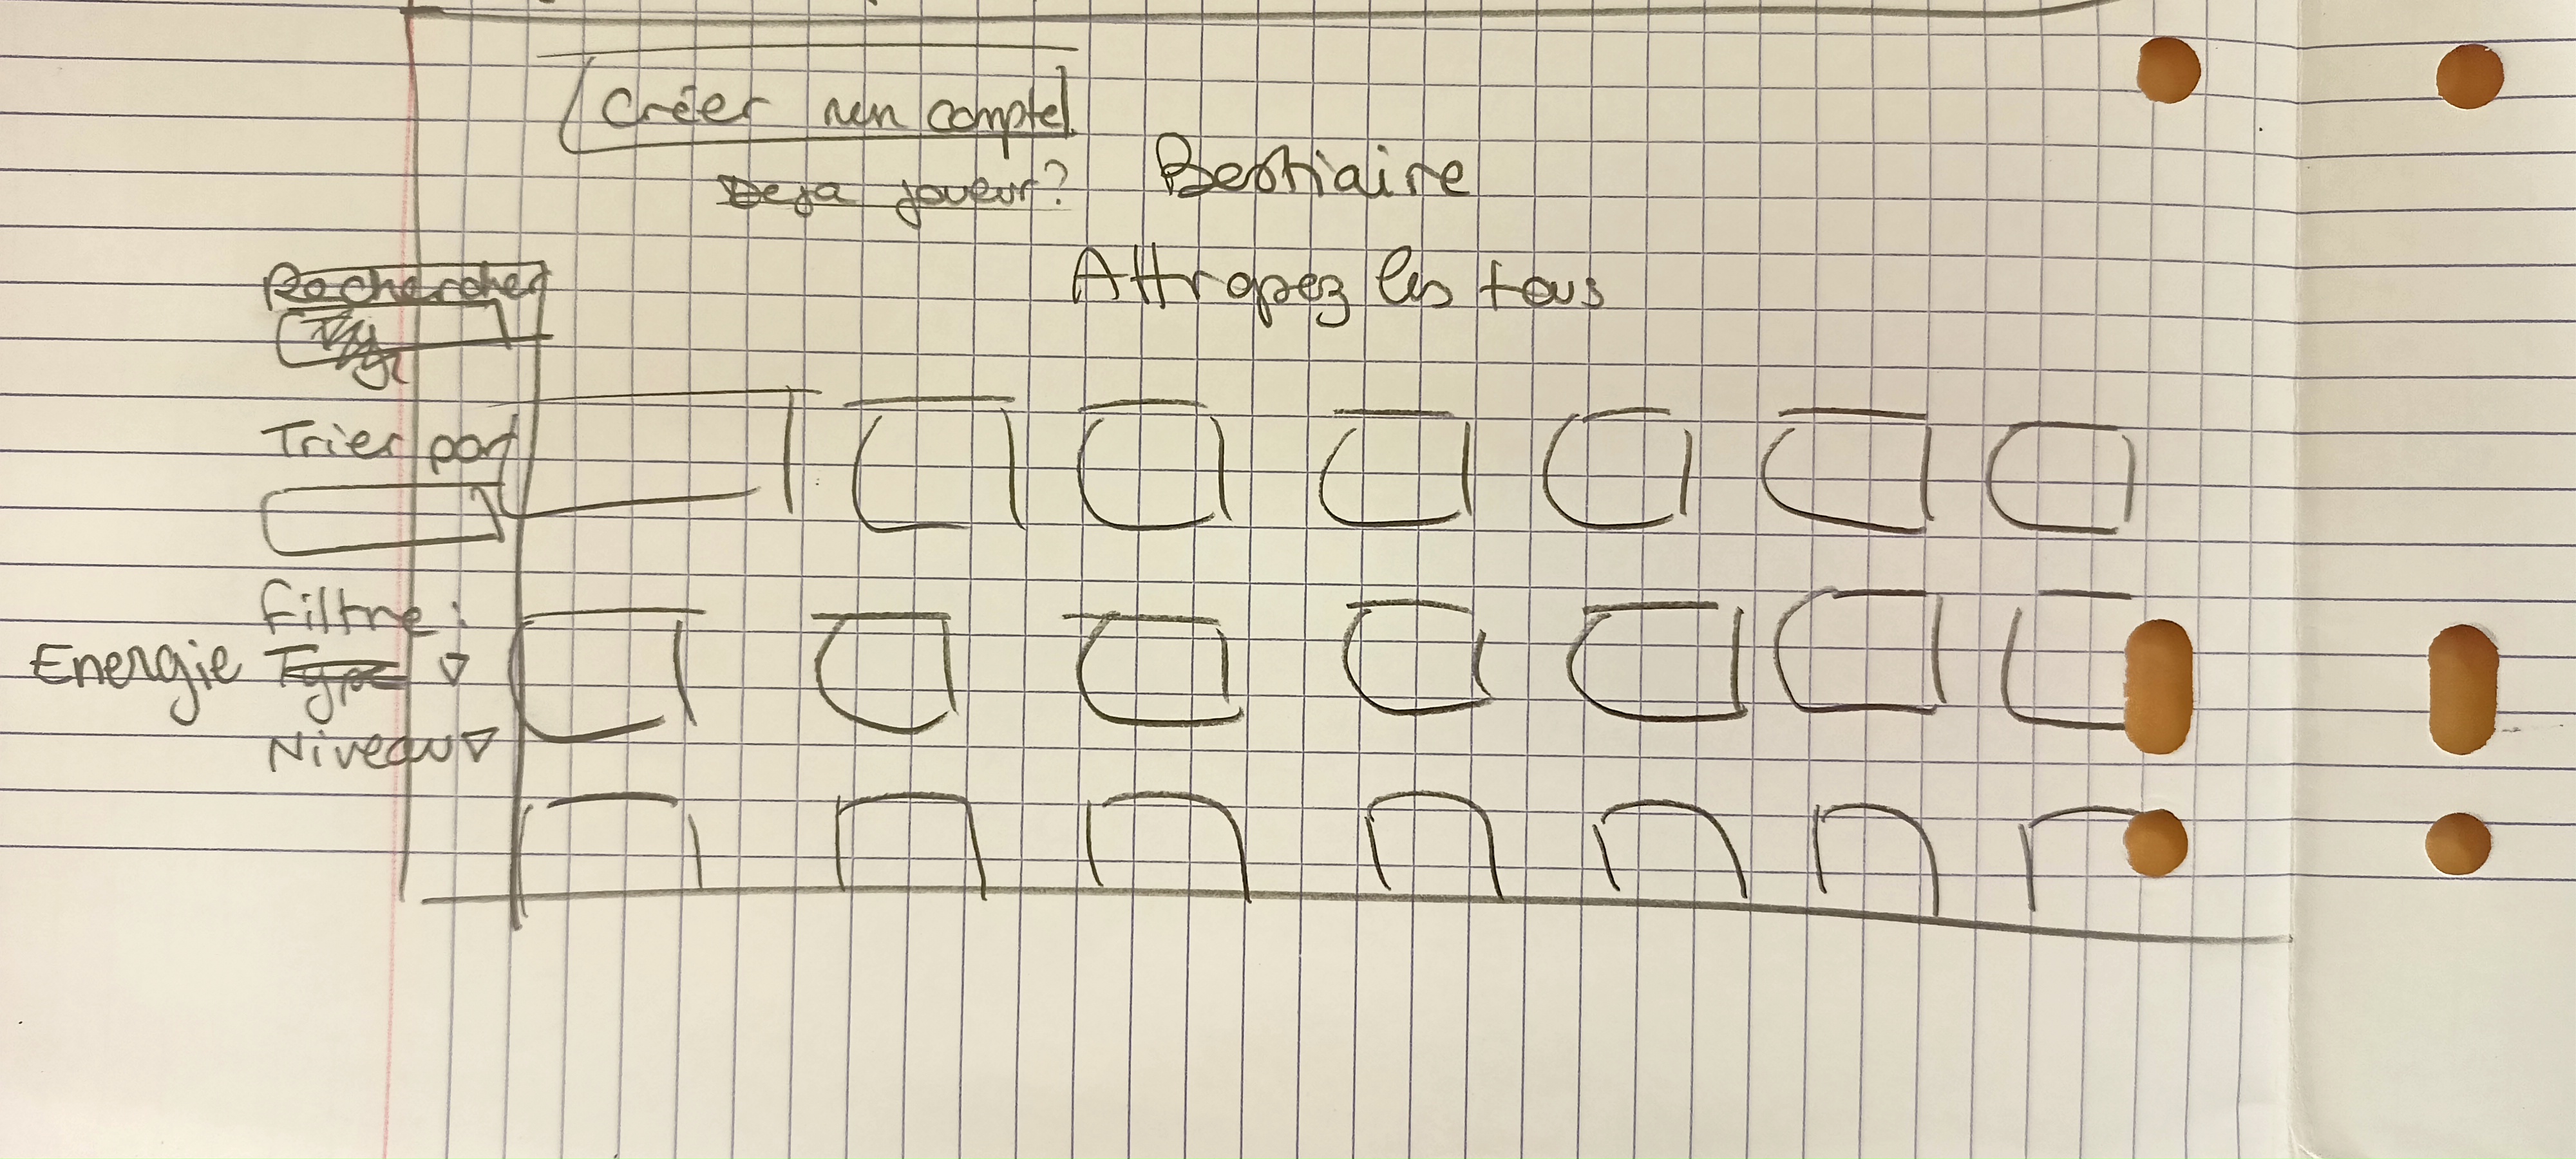 Créer un compte
Deja joueur?
Bestiaire
Attrapez les tous
Rechercher
Trier par
Filtre :
Energie Type ▽
Niveau ▽